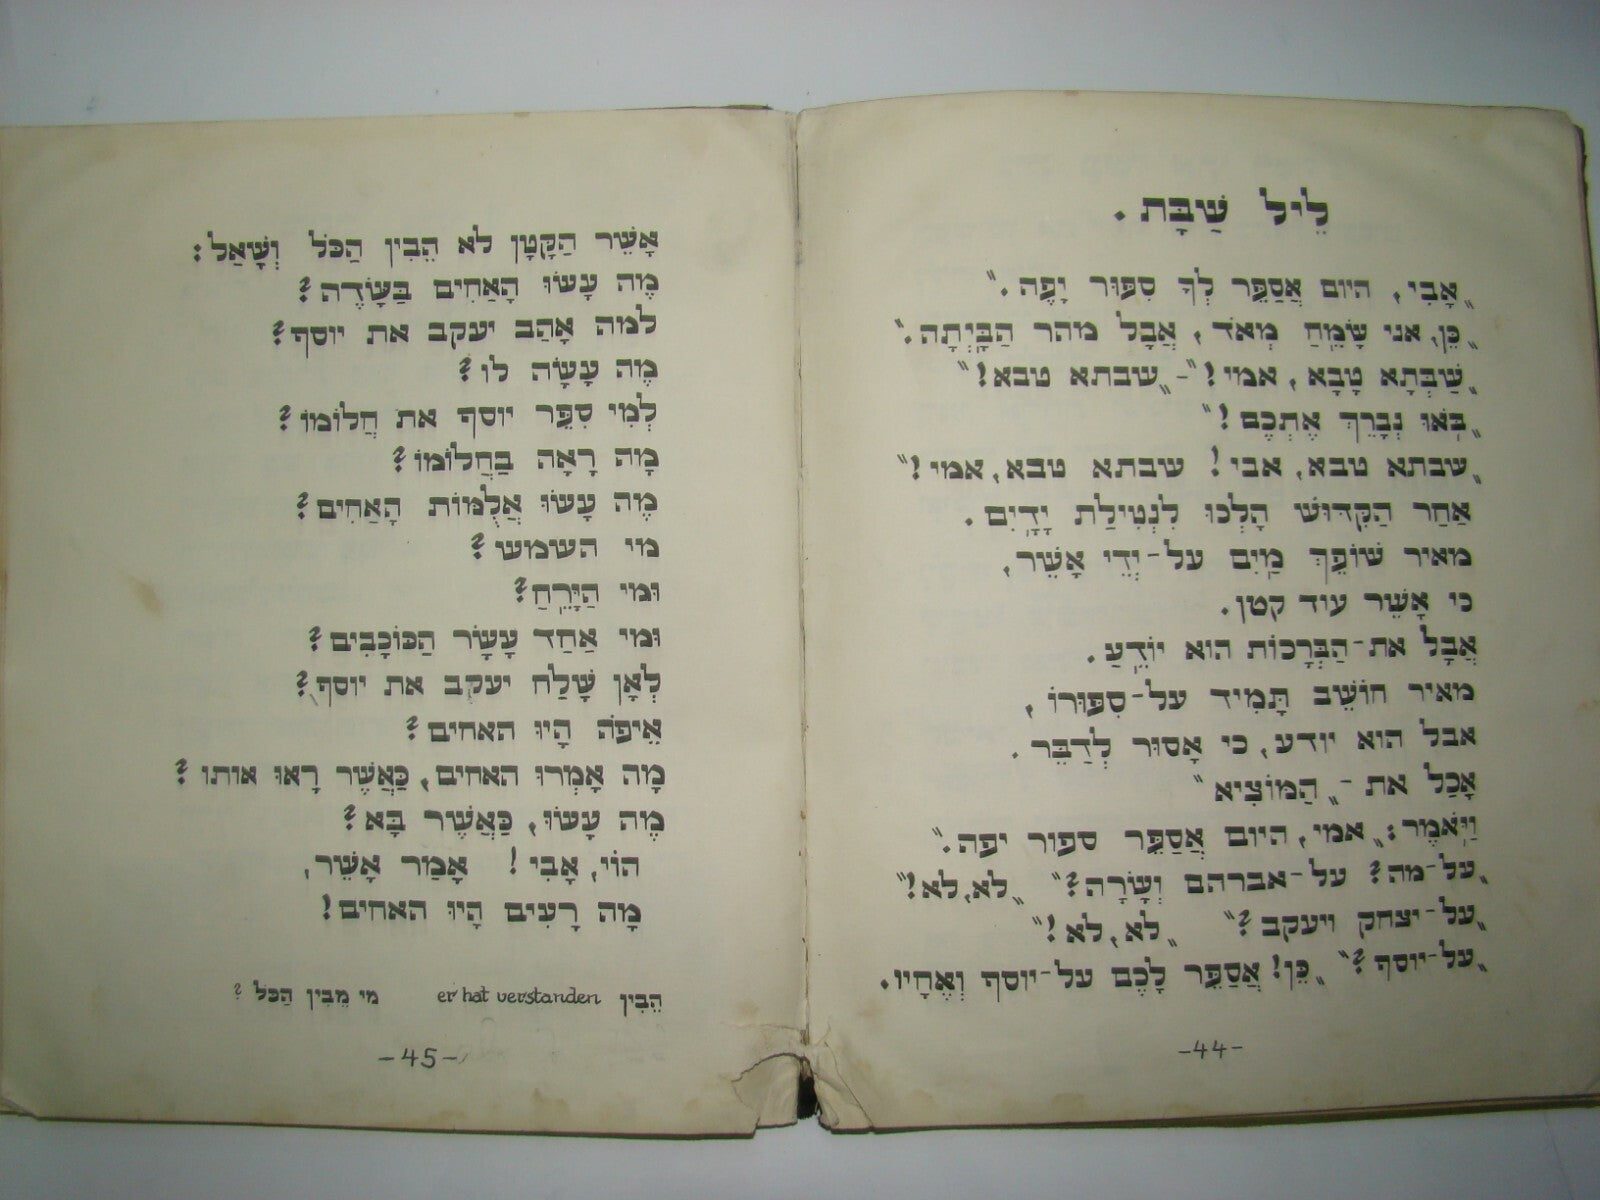 לֵיל שַׁבָּת.
„אָבִי, היום אֲסַפֵּר לְךָ סִפּוּר יָפֶה.”
„כֵּן, אני שָׂמֵחַ מְאֹד, אֲבָל מהר הַבָּיְתָה.”
„שַׁבְּתָא טָבָא, אמי!”-„שבתא טבא!”
„בֹּאוּ נְבָרֵךְ אֶתְכֶם!”
„שבתא טבא, אבי! שבתא טבא, אמי!”
אַחַר הַקִּדּוּשׁ הָלְכוּ לִנְטִילַת יָדָיִם.
מאיר שׁוֹפֵךְ מַיִם על-יְדֵי אָשֵׁר,
כי אָשֵׁר עוד קטן.
אֲבָל את-הַבְּרָכוֹת הוא יוֹדֵעַ.
מאיר חוֹשֵׁב תָּמִיד על-סִפּוּרוֹ,
אבל הוא יודע, כי אָסוּר לְדַבֵּר.
אָכַל את-„הַמּוֹצִיא”
וַיֹּאמֶר: „אמי, היום אֲסַפֵּר ספור יפה.”
„על-מה? על-אברהם וְשָׂרָה?” „לא, לא!”
„על-יצחק ויעקב?” „לא, לא!”
„על-יוסף?” „כֵּן! אֲסַפֵּר לָכֶם על-יוסף וְאֶחָיו.
-44-
אָשֵׁר הַקָּטָן לֹא הֵבִין הַכֹּל וְשָׁאַל:
מֶה עָשׂוּ הָאַחִים בַּשָּׂדֶה?
למה אָהַב יעקב את יוסף?
מֶה עָשָׂה לו?
לְמִי סִפֵּר יוסף את חֲלוֹמוֹ?
מָה רָאָה בַחֲלוֹמוֹ?
מֶה עָשׂוּ אֲלֻמּוֹת הָאַחִים?
מי השמש?
וּמי הַיָּרֵחַ?
וּמי אַחַד עָשָׂר הַכּוֹכָבִים?
לְאָן שָׁלַח יעקב את יוסף?
אֵיפֹה הָיוּ האחים?
מָה אָמְרוּ האחים, כַּאֲשֶׁר רָאוּ אותו?
מֶה עָשׂוּ, כַּאֲשֶׁר בָּא?
הוֹי, אָבִי! אָמַר אָשֵׁר,
מָה רָעִים הָיוּ האחים!
הֵבִין er hat verstanden מי מֵבִין הַכֹּל?
-45-